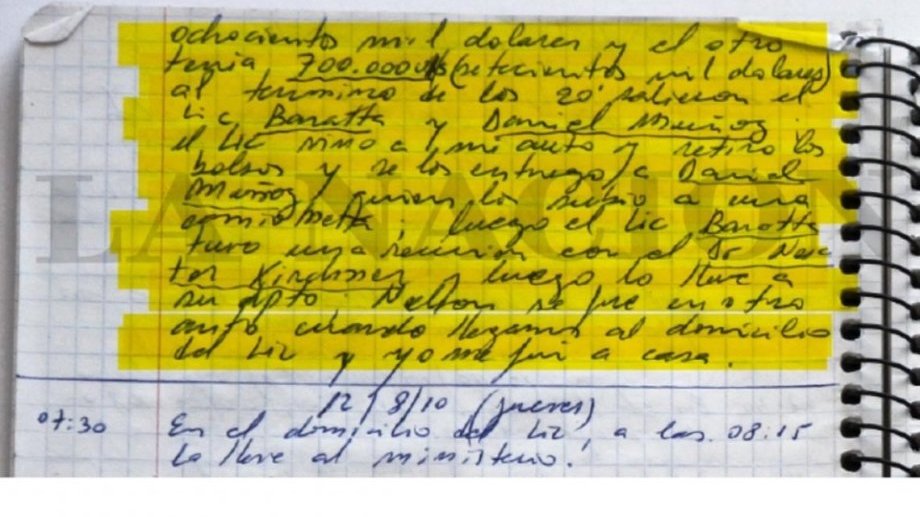 ochocientos mil dolares y el otro
tenia 700.000 U$S (setecientos mil dolares)
al termino de los 20' salieron el
Lic Baratta y Daniel Muñoz.
el Lic vino a mi auto y retiro los
bolsos y se los entrego a Daniel
Muñoz, quien los subio a una
camioneta; luego el Lic Baratta
tuvo una reunion con el Dr Nes
tor Kirchner, luego lo lleve a
su dpto. Nelson se fue en otro
auto cuando llegamos al domicilio
del Lic y yo me fui a casa.
12/8/10 (jueves)
07:30 En el domicilio del Lic, a las 08:15
lo lleve al ministerio.
LA NACION